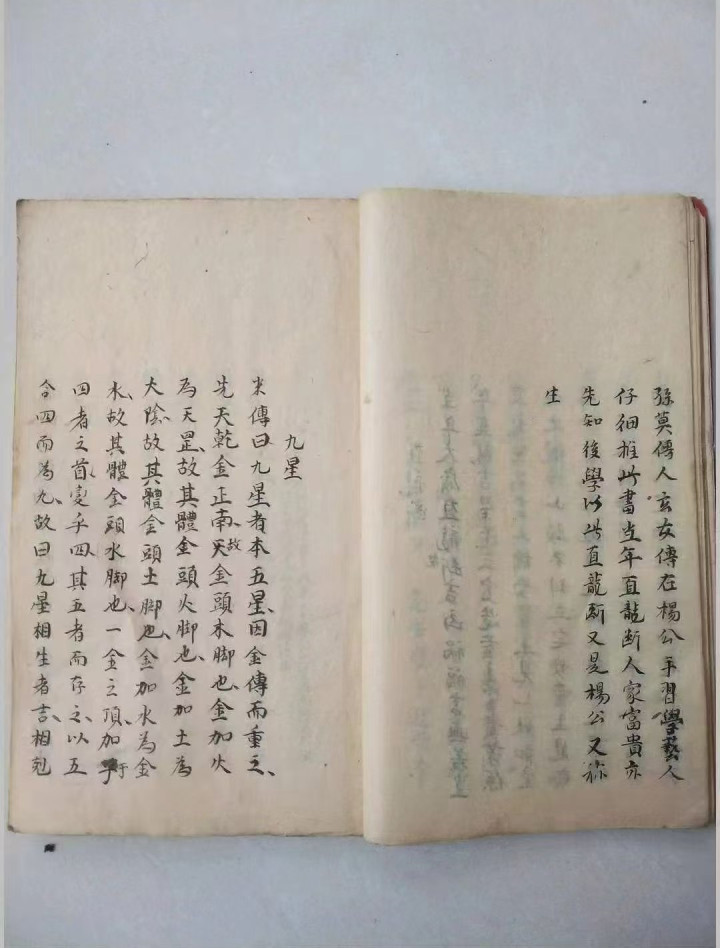 孫莫傳人玄女傳在楊公手習學藝人
仔細推此書当年直龍断人家富貴亦
先知後學以此直龍断又是楊公又称
生
九星
宋傳曰九星者本五星因金傳而重之
先天乾金正南故天金頭木脚也金加火
為天罡故其體金頭火脚也金加土為
太陰故其體金頭土脚也金加水為金
水故其體金頭水脚也一金之頂加于
四者之首変乎四其五者而存之以五
合四而為九故曰九星相生者吉相剋